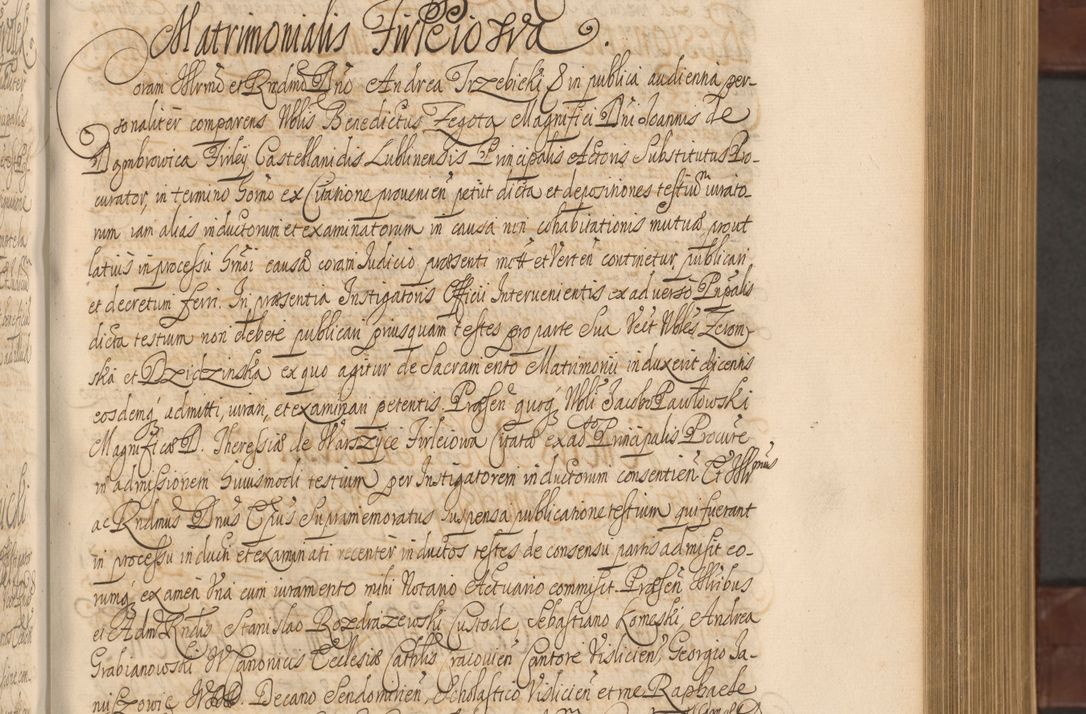 Matrimonialis Firleiowa.
Coram Illrmo et Rndmo Dno Andrea Trzebicki & in publica audientia per-
sonaliter comparens Nblis Benedictus Zegota Magnifici Dni Joannis de
Dąmbrowica Firley Castellanidis Lublinensis Principalis Actoris Substitutus Pro-
curator, in termino horno ex Citatione provenien petiit dicta et depositiones testium iurato-
rum iam alias inductorum et examinatorum in causa non cohabitationis mutuæ prout
latius in processu hmoi causæ coram Iudicio præsenti mott et Verten continetur publicari
et decretum ferri. In præsentia Instigatoris Officii Intervenientis ex adverso Pnpalis
dicta testium non debere publicari priusquam testes pro parte sua Veit Nbles Zerom-
ska et Dzidzinska ex quo agitur de Sacramento Matrimonii induxerit dicentis
eosdemq admitti, iurari, et examinari petentis. Præsen quoq Nbli Jacobo Pawłowski
Magnificæ D. Theressiæ de Warszyce Firleiowa Citatæ ex adto Principalis Procure
in admissionem huiusmodi testium per Instigatorem inductorum consentien Et Illr mus
ac Rndmus Dnus Eius Supramemoratus Suspensa publicatione testium qui fuerant
in processu inducti et examinati recenter inductos testes de consensu partis admisit eo-
rumq examen Vna cum iuramento mihi Notario Actuario commisit. Præsen Illribus
et Adm Rndis Stanislao Rozdrazewski Custode, Sebastiano Komeski, Andrea
Grabianowski Canonicis Ecclesiæ Cathlis Cracovien Cantore Vislicien Georgio Ja-
niszowic Decano Sendomirien, Scholastico Vislicien et me Raphaele